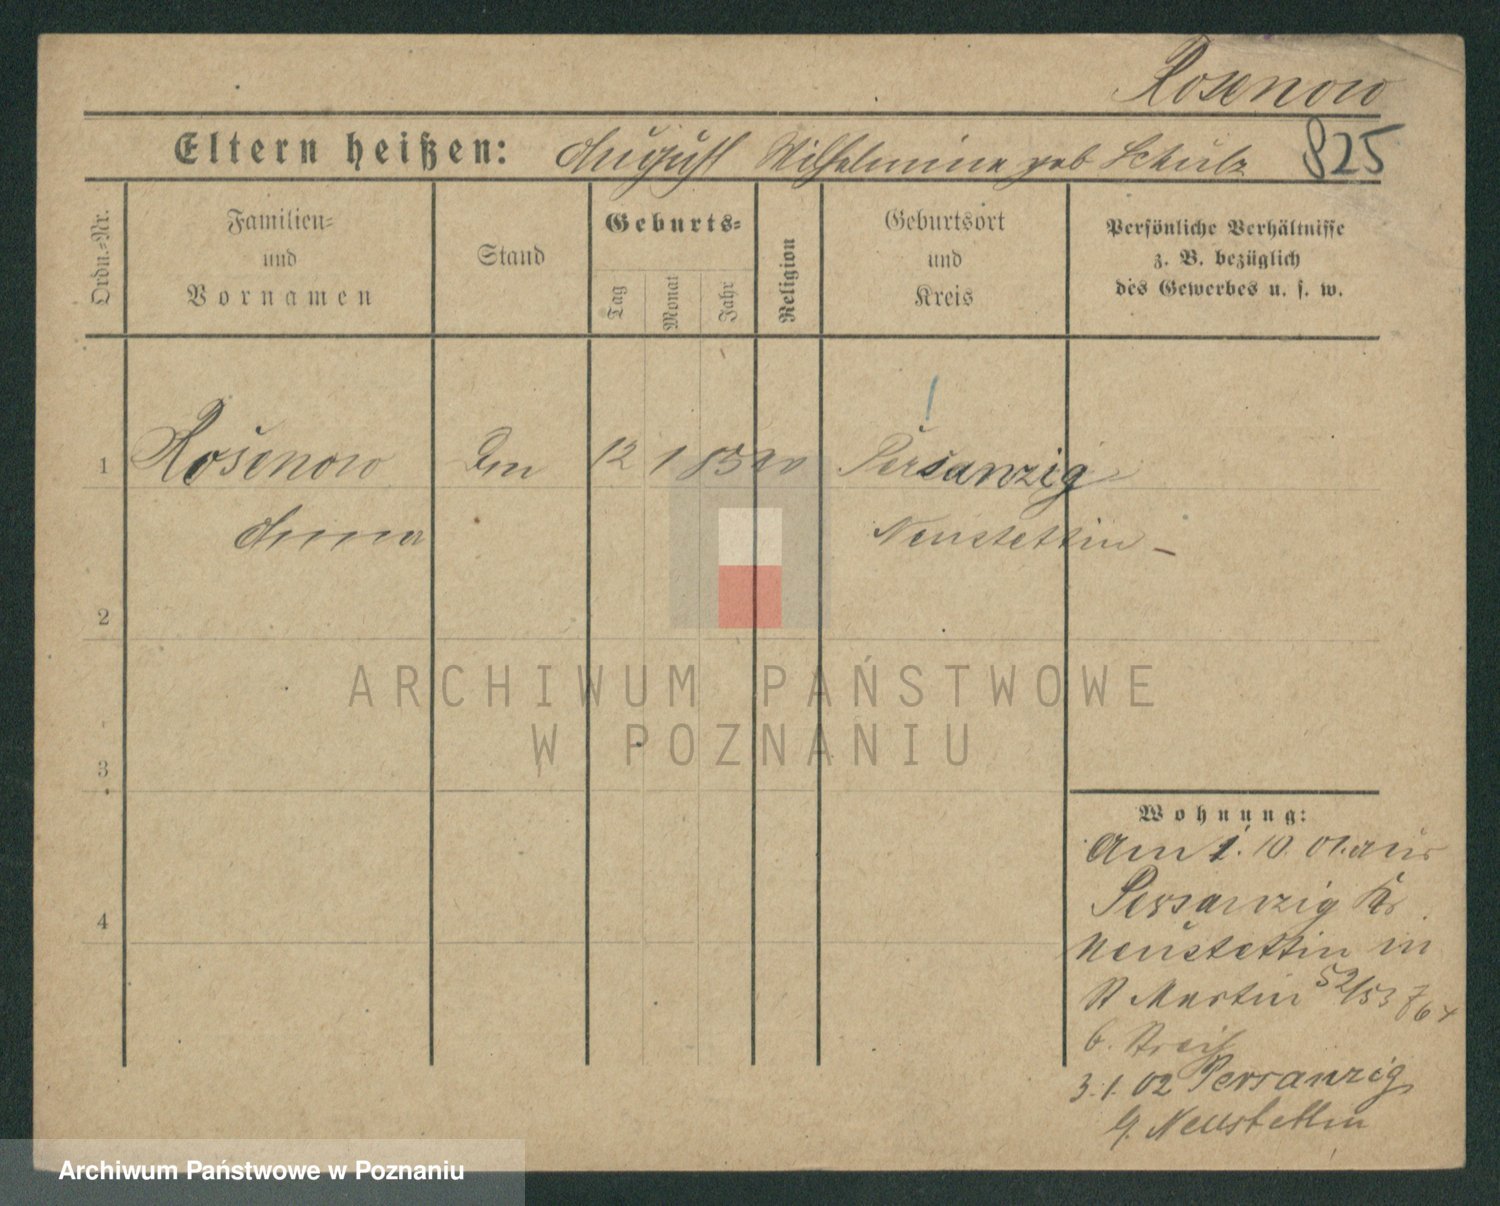 Rosenow
Eltern heißen: August Wilhelmine geb Schulz 825
Ordn.=Nr.
Familien=
und
Vornamen
Stand
Geburts=
Tag
Monat
Jahr
Religion
Geburtsort
und
Kreis
Persönliche Verhältnisse
z. B. bezüglich
des Gewerbes u. s. w.
1 Rosenow 12 1 85 Persanzig
Anna Neustettin
2
ARCHIWUM PAŃSTWOWE
W POZNANIU
3
Wohnung:
Am 1. 10. 01. aus
Persanzig Kr
4
Neustettin in
St Martin 52/53
b.
3.1.02 Persanzig
Neustettin
Archiwum Państwowe w Poznaniu